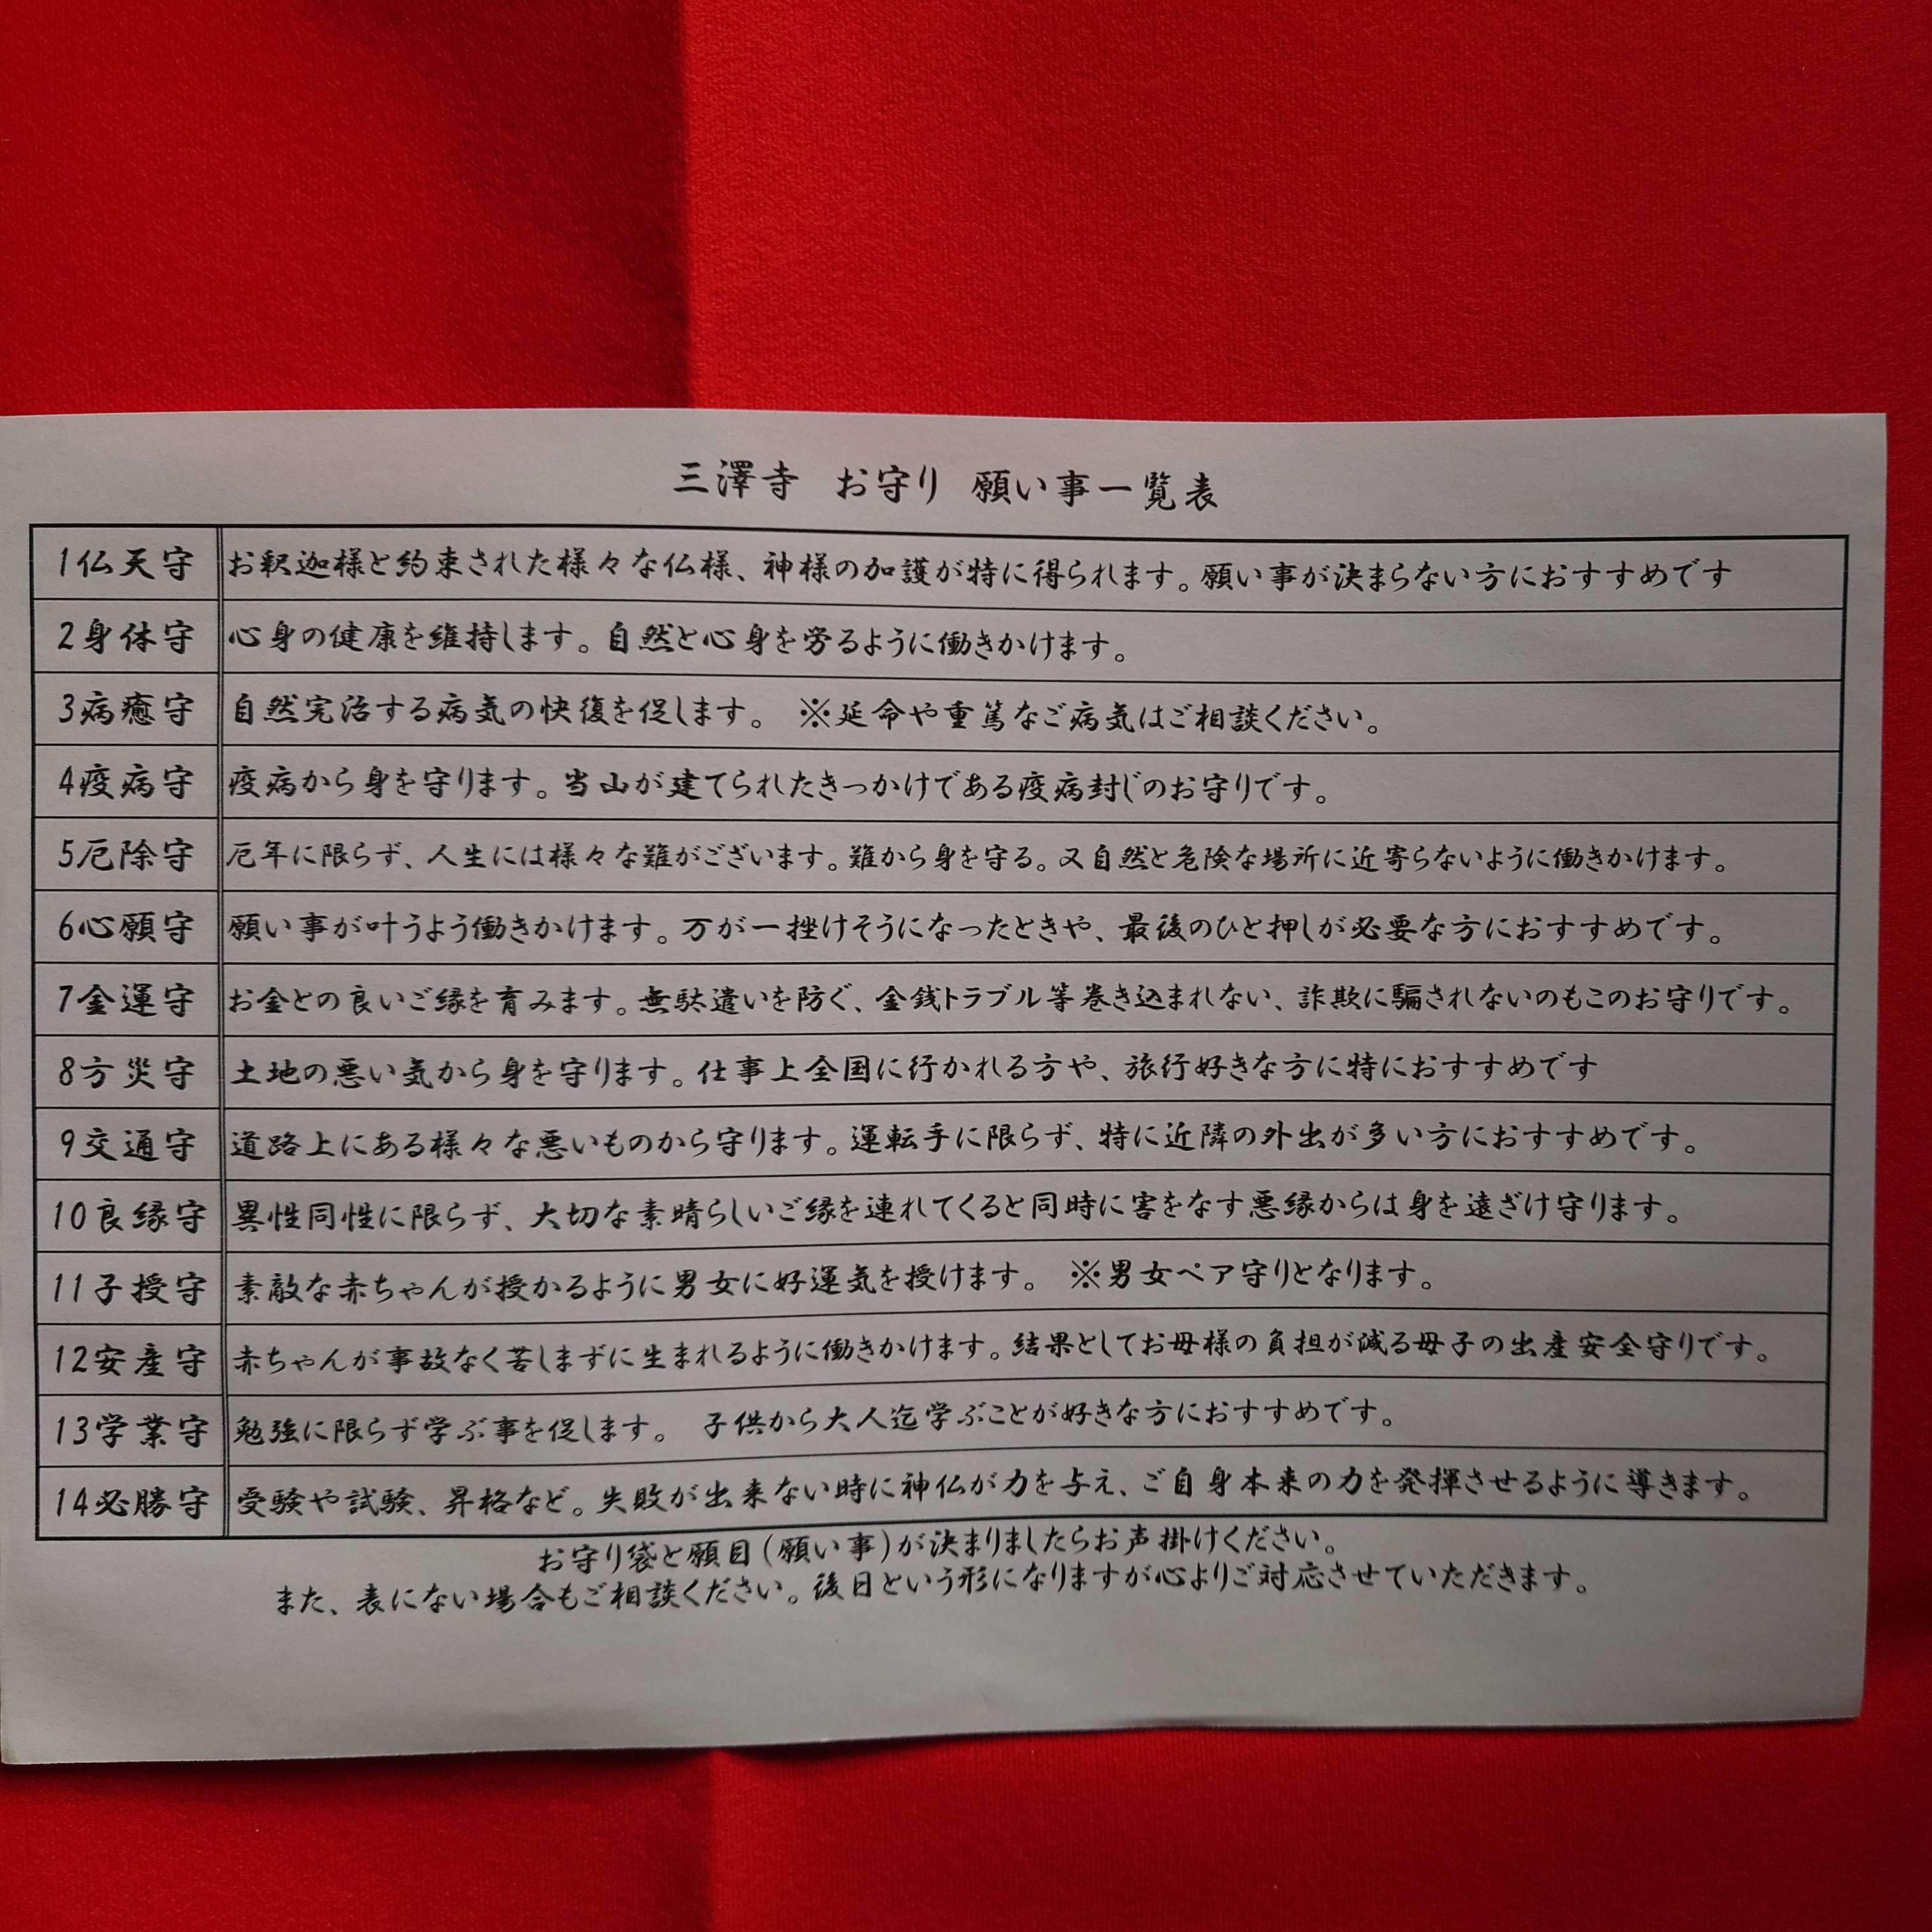 三澤寺 お守り 願い事一覧表
1仏天守 お釈迦様と約束された様々な仏様、神様の加護が特に得られます。願い事が決まらない方におすすめです
2身体守 心身の健康を維持します。自然と心身を労るように働きかけます。
3病癒守 自然完治する病気の快復を促します。 ※延命や重篤なご病気はご相談ください。
4疫病守 疫病から身を守ります。当山が建てられたきっかけである疫病封じのお守りです。
5厄除守 厄年に限らず、人生には様々な難がございます。難から身を守る。又自然と危険な場所に近寄らないように働きかけます。
6心願守 願い事が叶うよう働きかけます。万が一挫けそうになったときや、最後のひと押しが必要な方におすすめです。
7金運守 お金との良いご縁を育みます。無駄遣いを防ぐ、金銭トラブル等巻き込まれない、詐欺に騙されないのもこのお守りです。
8方災守 土地の悪い気から身を守ります。仕事上全国に行かれる方や、旅行好きな方に特におすすめです
9交通守 道路上にある様々な悪いものから守ります。運転手に限らず、特に近隣の外出が多い方におすすめです。
10良縁守 異性同性に限らず、大切な素晴らしいご縁を連れてくると同時に害をなす悪縁からは身を遠ざけ守ります。
11子授守 素敵な赤ちゃんが授かるように男女に好運気を授けます。 ※男女ペア守りとなります。
12安産守 赤ちゃんが事故なく苦しまずに生まれるように働きかけます。結果としてお母様の負担が減る母子の出産安全守りです。
13学業守 勉強に限らず学ぶ事を促します。 子供から大人迄学ぶことが好きな方におすすめです。
14必勝守 受験や試験、昇格など。失敗が出来ない時に神仏が力を与え、ご自身本来の力を発揮させるように導きます。
お守り袋と願目(願い事)が決まりましたらお声掛けください。
また、表にない場合もご相談ください。後日という形になりますが心よりご対応させていただきます。